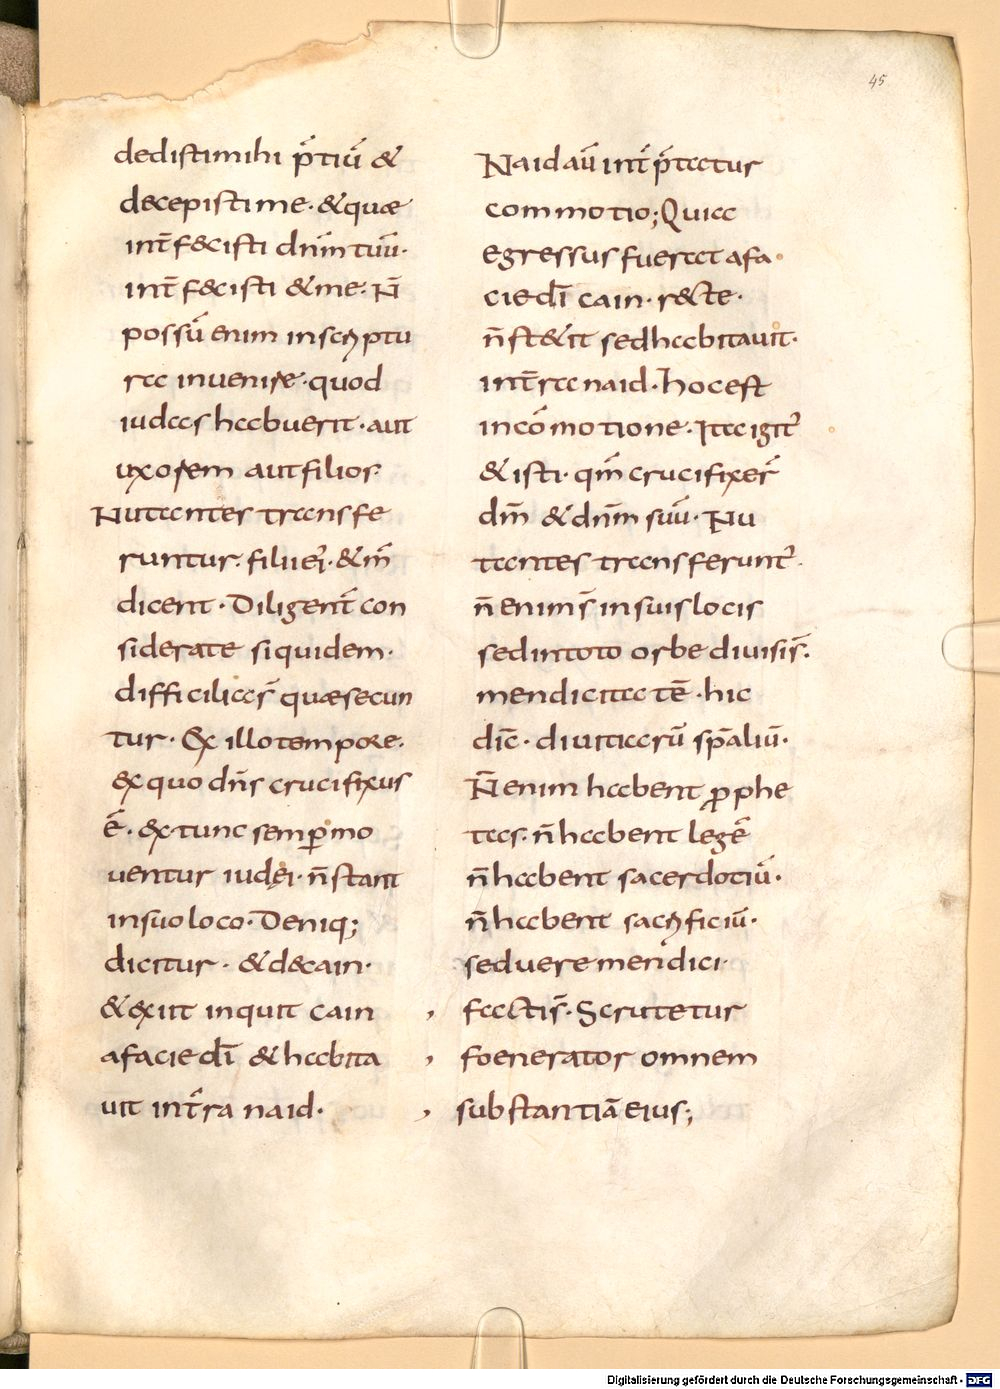 45
dedistimihi p̄tiū &
decepistime· &quæ
int̄f&cisti dnm̄ tuū·
int̄f&cisti &me· N̄
possū enim inscriptu
ra invenire· quod
iudas habuerit· aut
uxorem aut filios·
Nutantes transfe
runtur· filii ei· &m̄
dicent· Diligent̄ con
siderate siquidem·
difficilias̄ quæsecun
tur· Ex illo tempore·
ex quo dn̄s crucifixus
ē· ex tunc semp̄ mo
uentur iudei· n̄stant
insuoloco· Deniq;
dicitur· &decain·
&exiit inquit cain
afacie dī &habita
uit intra naid·
Naid aū int̄p̄tatur
commotio; Quia
egressus fuerat afa
ciedī cain· recte·
n̄st&it sedhabitauit·
int̄ra naid· hocest
incōmotione· Ita igit̄
& isti· qm̄ crucifixer̄
dm̄ &dnm̄ suū· Nu
tantes transferunt̄·
n̄enims̄ insuislocis
sedintoto orbe diuisis̄·
mendicitatē· hic
dic̄· diuitiarū sp̄aliū·
N̄enim habent prophe
tas· n̄habent legē
n̄habent sacerdotiū·
n̄habent sacrificiū·
seduere mendici·
factis̄· Scrutetur
foenerator omnem
substantiā eius;
Digitalisierung gefördert durch die Deutsche Forschungsgemeinschaft - DFG